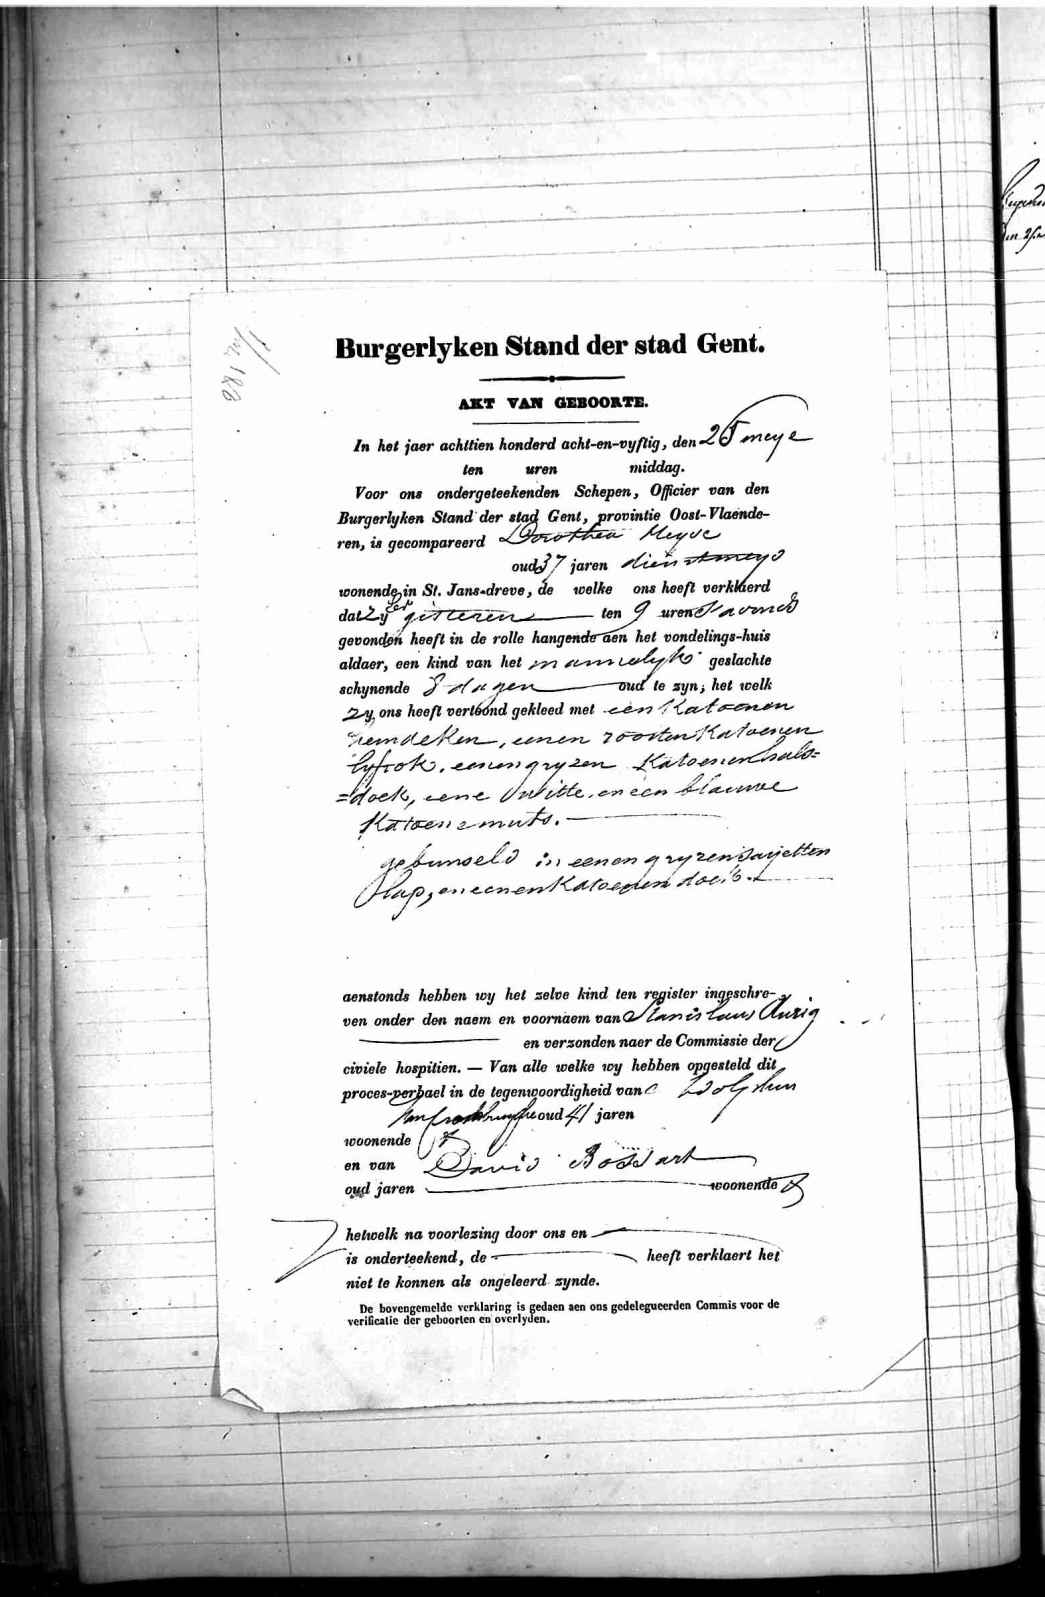 Burgerlyken Stand der stad Gent.
AKT VAN GEBOORTE.
In het jaer achttien honderd acht-en-vyftig, den 25 meye
ten uren middag.
Voor ons ondergeteekenden Schepen, Officier van den
Burgerlyken Stand der stad Gent, provintie Oost-Vlaende-
ren, is gecompareerd Dorothea
oud 37 jaren dienstmeyd
wonende in St. Jans-dreve, de welke ons heeft verklaerd
dat zy gisteren ten 9 uren s'avonds
gevonden heeft in de rolle hangende aen het vondelings-huis
aldaer, een kind van het mannelyk geslachte
schynende 8 dagen oud te zyn; het welk
zy ons heeft vertoond gekleed met een Katoenen
hemdeken, eenen roosten Katoenen
lyfrok, eenen gryzen Katoenen hals=
=doek, eene witte en een blauwe
Katoene muts.
gebunseld in eenen gryzen sarjetten
lap, en eenen Katoenen doek.
aenstonds hebben wy het zelve kind ten register ingeschre-
ven onder den naem en voornaem van Stanislaus
en verzonden naer de Commissie der
civiele hospitien. — Van alle welke wy hebben opgesteld dit
proces-verbael in de tegenwoordigheid van
oud 41 jaren
woonende
en van David Bossart
oud jaren woonende
hetwelk na voorlezing door ons en
is onderteekend, de heeft verklaert het
niet te konnen als ongeleerd zynde.
De bovengemelde verklaring is gedaen aen ons gedelegueerden Commis voor de
verificatie der geboorten en overlyden.